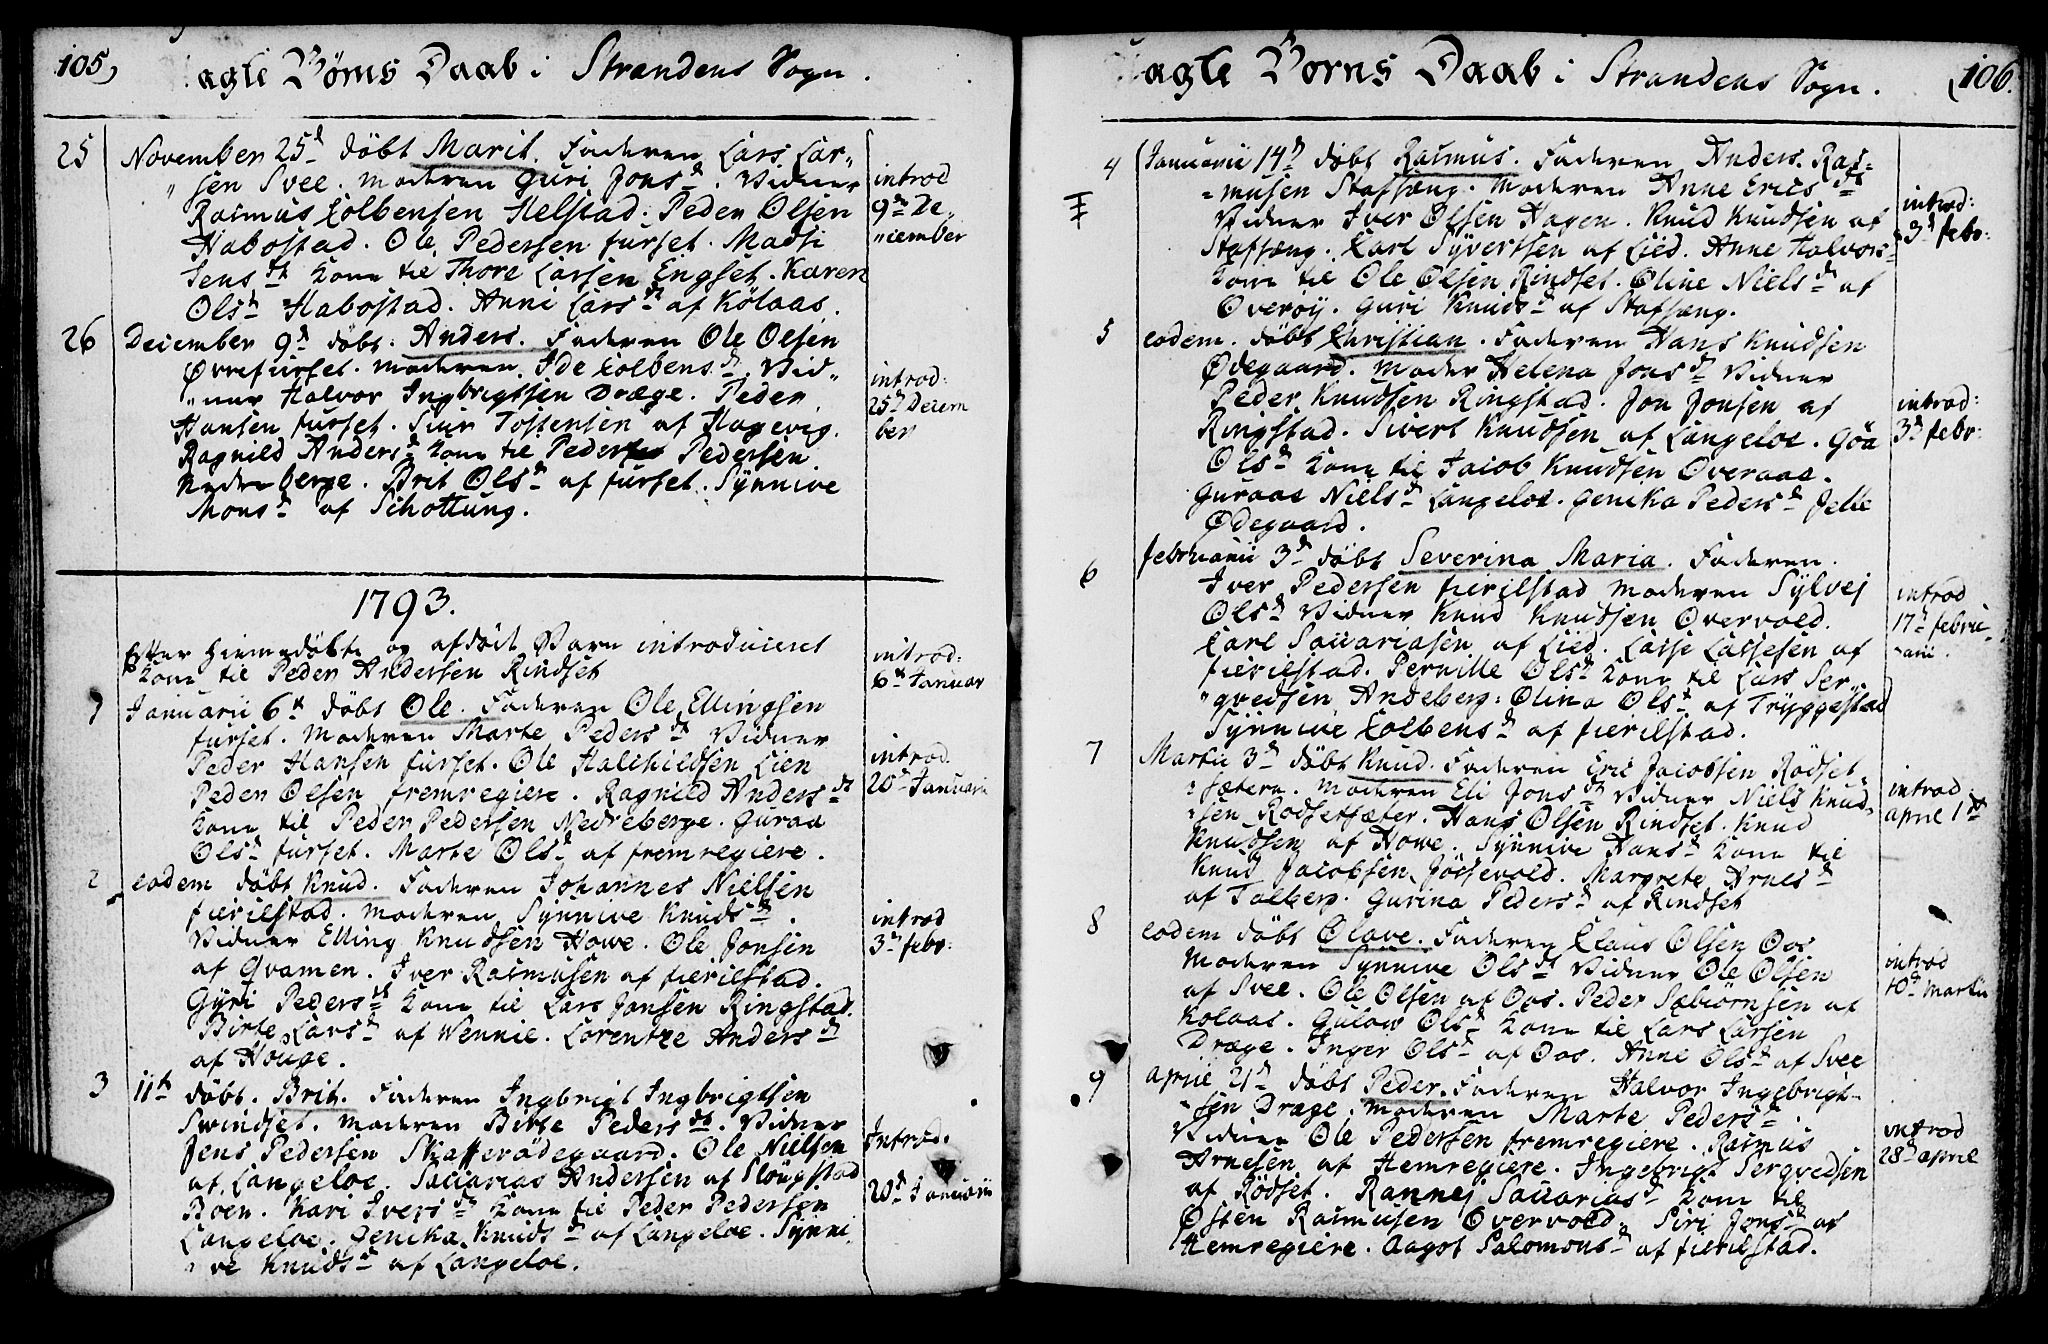 105)
agte Börns Daab i Strandens Sogn.
25 November 25d döbt Marit. Faderen Lars Lar„
„sen Svee. Moderen Guri Jonsd. Vidner
Rasmus Colbensen Helstad. Peder Olsen
Habostad. Ole Pedersen furset. Madsi
Jensdt Kone til Thore Larsen Engset. Karen
Olsdt Habostad. Anni Larsdt af Kölaas.
introd
9de De„
„cember
26 December 9d döbt: Anders. Faderen Ole Olsen
Övrefurset. Moderen Ide Colbensd. Vid„
„ner Halvor Ingbrigtsen Dræge. Peder
Hansen furset. Siur Tostensen af Hagevig.
Ragnild Andersd Kone til Peder Pedersen
Nedreberge. Brit Olsd af furset. Synnive
Monsd af Schottung.
introd:
25d Decem
ber
1793.
Efter hiemedöbte og afdöd Barn introduceret
Kone til Peder Andersen Rindset
introd:
6d Januar
1 Januarii 6d döbt Ole. Faderen Ole Ellingsen
furset. Moderen Marte Pedersdt Vidner
Peder Hansen furset. Ole Halchildsen Lien
Peder Olsen fremregiere. Ragnild Andersdt
Kone til Peder Pedersen Nedreberge. Guraa
Olsd furset. Marte Olsd af fremregiere.
introd.
20d Januarii
2 eodem döbt Knud. Faderen Johannes Nielsen
fierilstad. Moderen Synnive Knudsdt.
Vidner Elling Knudsen Howe. Ole Jonsen
af Qvamen. Iver Rasmusen af fierilstad.
Gyri Pedersdt Kone til Lars Jansen Ringstad.
Birte Larsd af Wennie. Lorentze Andersd
af Houge.
introd
3d febr:
3 11te döbt. Brit. Faderen Ingbrigt Ingbrigtsen
Swindset. Moderen Birte Pedersdt. Vidner
Jens Pedersen Skafferödegaard. Ole Nielsen
af Langeloe. Saccarias Andersen af Slöugstad
Boen. Kari Iversd Kone til Peder Pedersen
Langeloe. Genika Knudsd af Langeloe. Synni„
„ve Knudsd af Langeloe.
introd.
20d Januarii
agte Börns Daab i Strandens Sogn. (106.
4 Januarii 14d döbt Rasmus. Faderen Anders Ras-
-musen Stafsæng. Moderen Anne Ericsdt
Vidner Iver Olsen Hagen. Knud Knudsen af
Stafsæng. Carl Syvertsen af Lied. Anne Halvors-
Kone til Ole Olsen Rindset. Oline Nielsd af
Överöy. Guri Knudsd af Stafsæng.
introd:
3d febr:
5 eodem. döbt Christian. Faderen Hans Knudsen
Ödegaard. Moder Helena Jonsd Vidner
Peder Knudsen Ringstad. Jon Jonsen af
Ringstad. Sivert Knudsen af Langeloe. Göa
Olsd Kone til Jacob Knudsen Overaae.
Guraae Nielsd Langeloe. Genika Pedersd Jelle
Ödegaard.
introd:
3d febr:
6 februarii 3d döbt Severina Maria. Faderen
Iver Pedersen fierilstad Moderen Sylvej
Olsd Vidner Knud Knudsen Overvold.
Carl Saccariasen af Lied. Lasse Lassesen af
fierilstad. Pernille Olsd Kone til Lars Ser„
„gvedsen Andeberg: Olina Olsd af Tryggestad
Synnive Colbensd af fierilstad.
introd
17d febru-
-arii.
7 Martii 3d döbt Knud. Faderen Eric Jacobsen Rödset-
-sætern. Moderen Eli Jonsdt Vidner Niels Knud-
-sen Rodsetsæter. Hans Olsen Rindset. Knud
Knudsen af Howe. Synnive Hansd Kone til
Knud Jacobsen Jödsevold. Margrete Arnesd
af Talberg. Gurina Pedersd af Rindset
introd
april 1ste
8 eodem döbt Olave. Faderen Claus Olsen Oos
Moderen Synnive Olsdt Vidner Ole Olsen
af Svee. Ole Olsen af Oos. Peder Sæbiörnsen af
Kolaas. Gulow Olsd Kone til Lars Larsen
Dræge. Inger Olsd af Oos. Anne Olsd af Svee
introd
10d Martii
9 april 21d döbt Peder. Faderen Halvor Ingebrigt-
-sen Dræge. Moderen Marte Pedersd.
Vidner Ole Pedersen fremregiere. Rasmus
Arnesen af Hemregiere. Ingebrigt Sergvedsen
af Rödset. Rannej Saccariasd Kone til
Östen Rasmusen Overvold. Siri Jonsd af
Hemregiere. Aagot Salomonsd af fierilstad.
introd
28d april